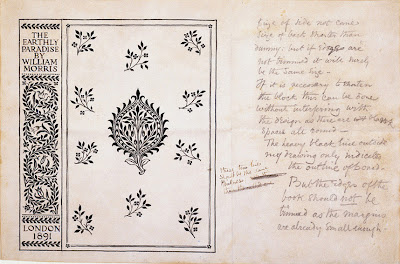 THE
EARTHLY
PARADISE
BY
WILLIAM
MORRIS
LONDON
1891
Size of side not come
Size of back shorter than
dummy: but if edges are
not trimmed it will nearly
be the same size -
If it is necessary to shorten
the block this can be done
without interfering with
the design as there are blank
spaces all round -
The heavy black line outside
my drawing only indicates
the outline of board -
But the edges of the
book should not be
trimmed as the margins
are already small enough.